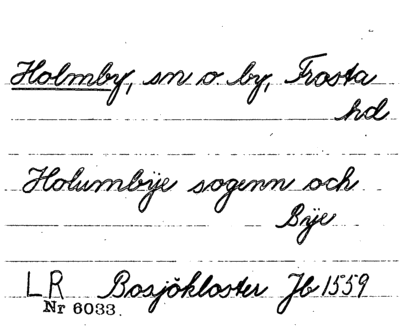 Holmby, sn o. by, Frosta
hd
Holumbÿe sogenn och
Bÿe
LR Bosjökloster Jb 1559
Nr 6033.